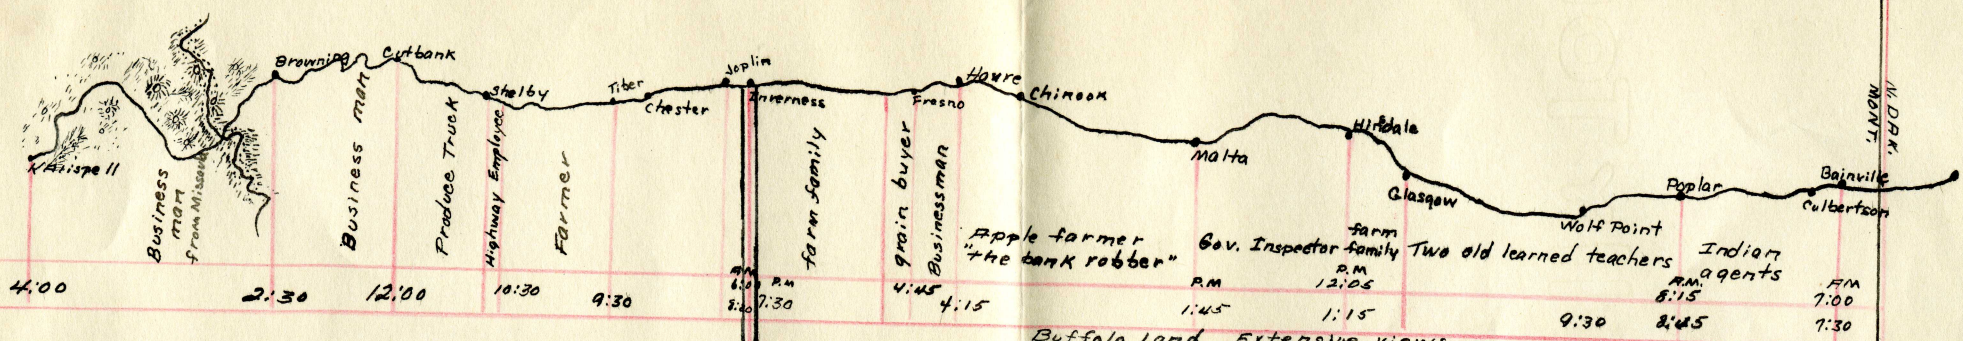 Browning
Cutbank
Shelby
Tiber
Chester
Joplin
Inverness
Fresno
Havre
Chinook
Malta
Hinsdale
Glasgow
Wolf Point
Poplar
Bainville
Culbertson
N. DAK.
MONT.
Kalispell
Business
man
from Missoula
Business man
Produce Truck
Highway Employee
Farmer
farm family
grain buyer
Businessman
Apple farmer
"the bank robber"
Gov. Inspector
farm
family
Two old learned teachers
Indian
agents
4:00
2:30
12:00
10:30
9:30
AM
P.M
7:30
4:45
4:15
P.M
1:45
P.M
12:05
1:15
9:30
A.M.
8:15
8:45
AM
7:00
7:30
Buffalo Land Extensive views